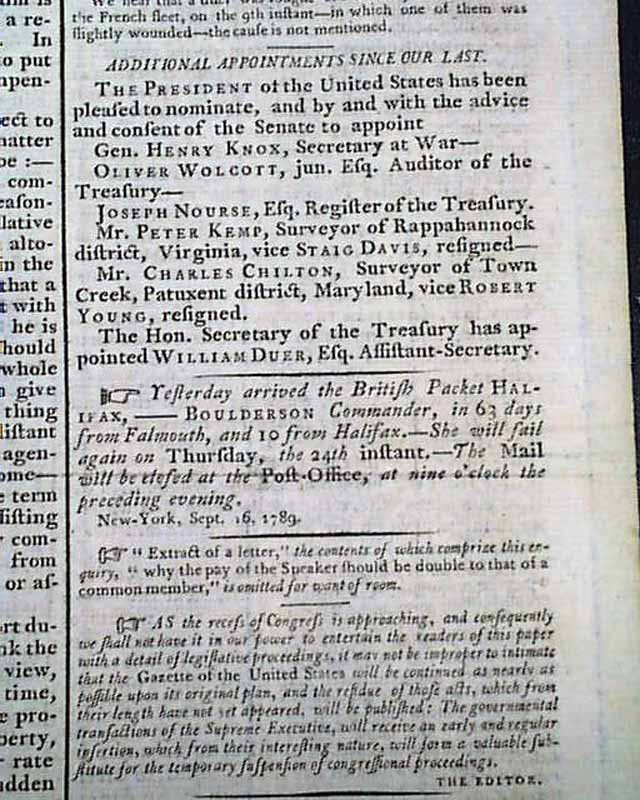 a re-
In
to put
mpen-
ect to
matter
be :—
com-
eason-
lative
alto-
in the
that a
t with
he is
ſhould
whole
n give
thing
diſtant
agen-
ome—
e term
ſiſting
com-
from
or aſ-
rt du-
nk the
view,
time,
e pro-
perty,
rate
udden
the French fleet, on the 9th inſtant—in which one of them was
ſlightly wounded—the cauſe is not mentioned.
ADDITIONAL APPOINTMENTS SINCE OUR LAST.
THE PRESIDENT of the United States has been
pleaſed to nominate, and by and with the advice
and conſent of the Senate to appoint
Gen. HENRY KNOX, Secretary at War—
OLIVER WOLCOTT, jun. Eſq. Auditor of the
Treaſury—
JOSEPH NOURSE, Eſq. Regiſter of the Treaſury.
Mr. PETER KEMP, Surveyor of Rappahannock
diſtrict, Virginia, vice STAIG DAVIS, reſigned—
Mr. CHARLES CHILTON, Surveyor of Town
Creek, Patuxent diſtrict, Maryland, vice ROBERT
YOUNG, reſigned.
The Hon. Secretary of the Treaſury has ap-
pointed WILLIAM DUER, Eſq. Aſſiſtant-Secretary.
☞ Yeſterday arrived the Britiſh Packet HAL-
IFAX, —— BOULDERSON Commander, in 63 days
from Falmouth, and 10 from Halifax.—She will ſail
again on Thurſday, the 24th inſtant.—The Mail
will be cloſed at the Poſt-Office, at nine o'clock the
preceding evening.
New-York, Sept. 16, 1789.
☞ "Extract of a letter," the contents of which comprize this en-
quiry, "why the pay of the Speaker ſhould be double to that of a
common member," is omitted for want of room.
☞ AS the receſs of Congreſs is approaching, and conſequently
we ſhall not have it in our power to entertain the readers of this paper
with a detail of legiſlative proceedings, it may not be improper to intimate
that the Gazette of the United States will be continued as nearly as
poſſible upon its original plan, and the reſidue of thoſe acts, which from
their length have not yet appeared, will be publiſhed: The governmental
tranſactions of the Supreme Executive, will receive an early and regular
inſertion, which from their intereſting nature, will form a valuable ſub-
ſtitute for the temporary ſuſpenſion of congreſſional proceedings.
THE EDITOR.